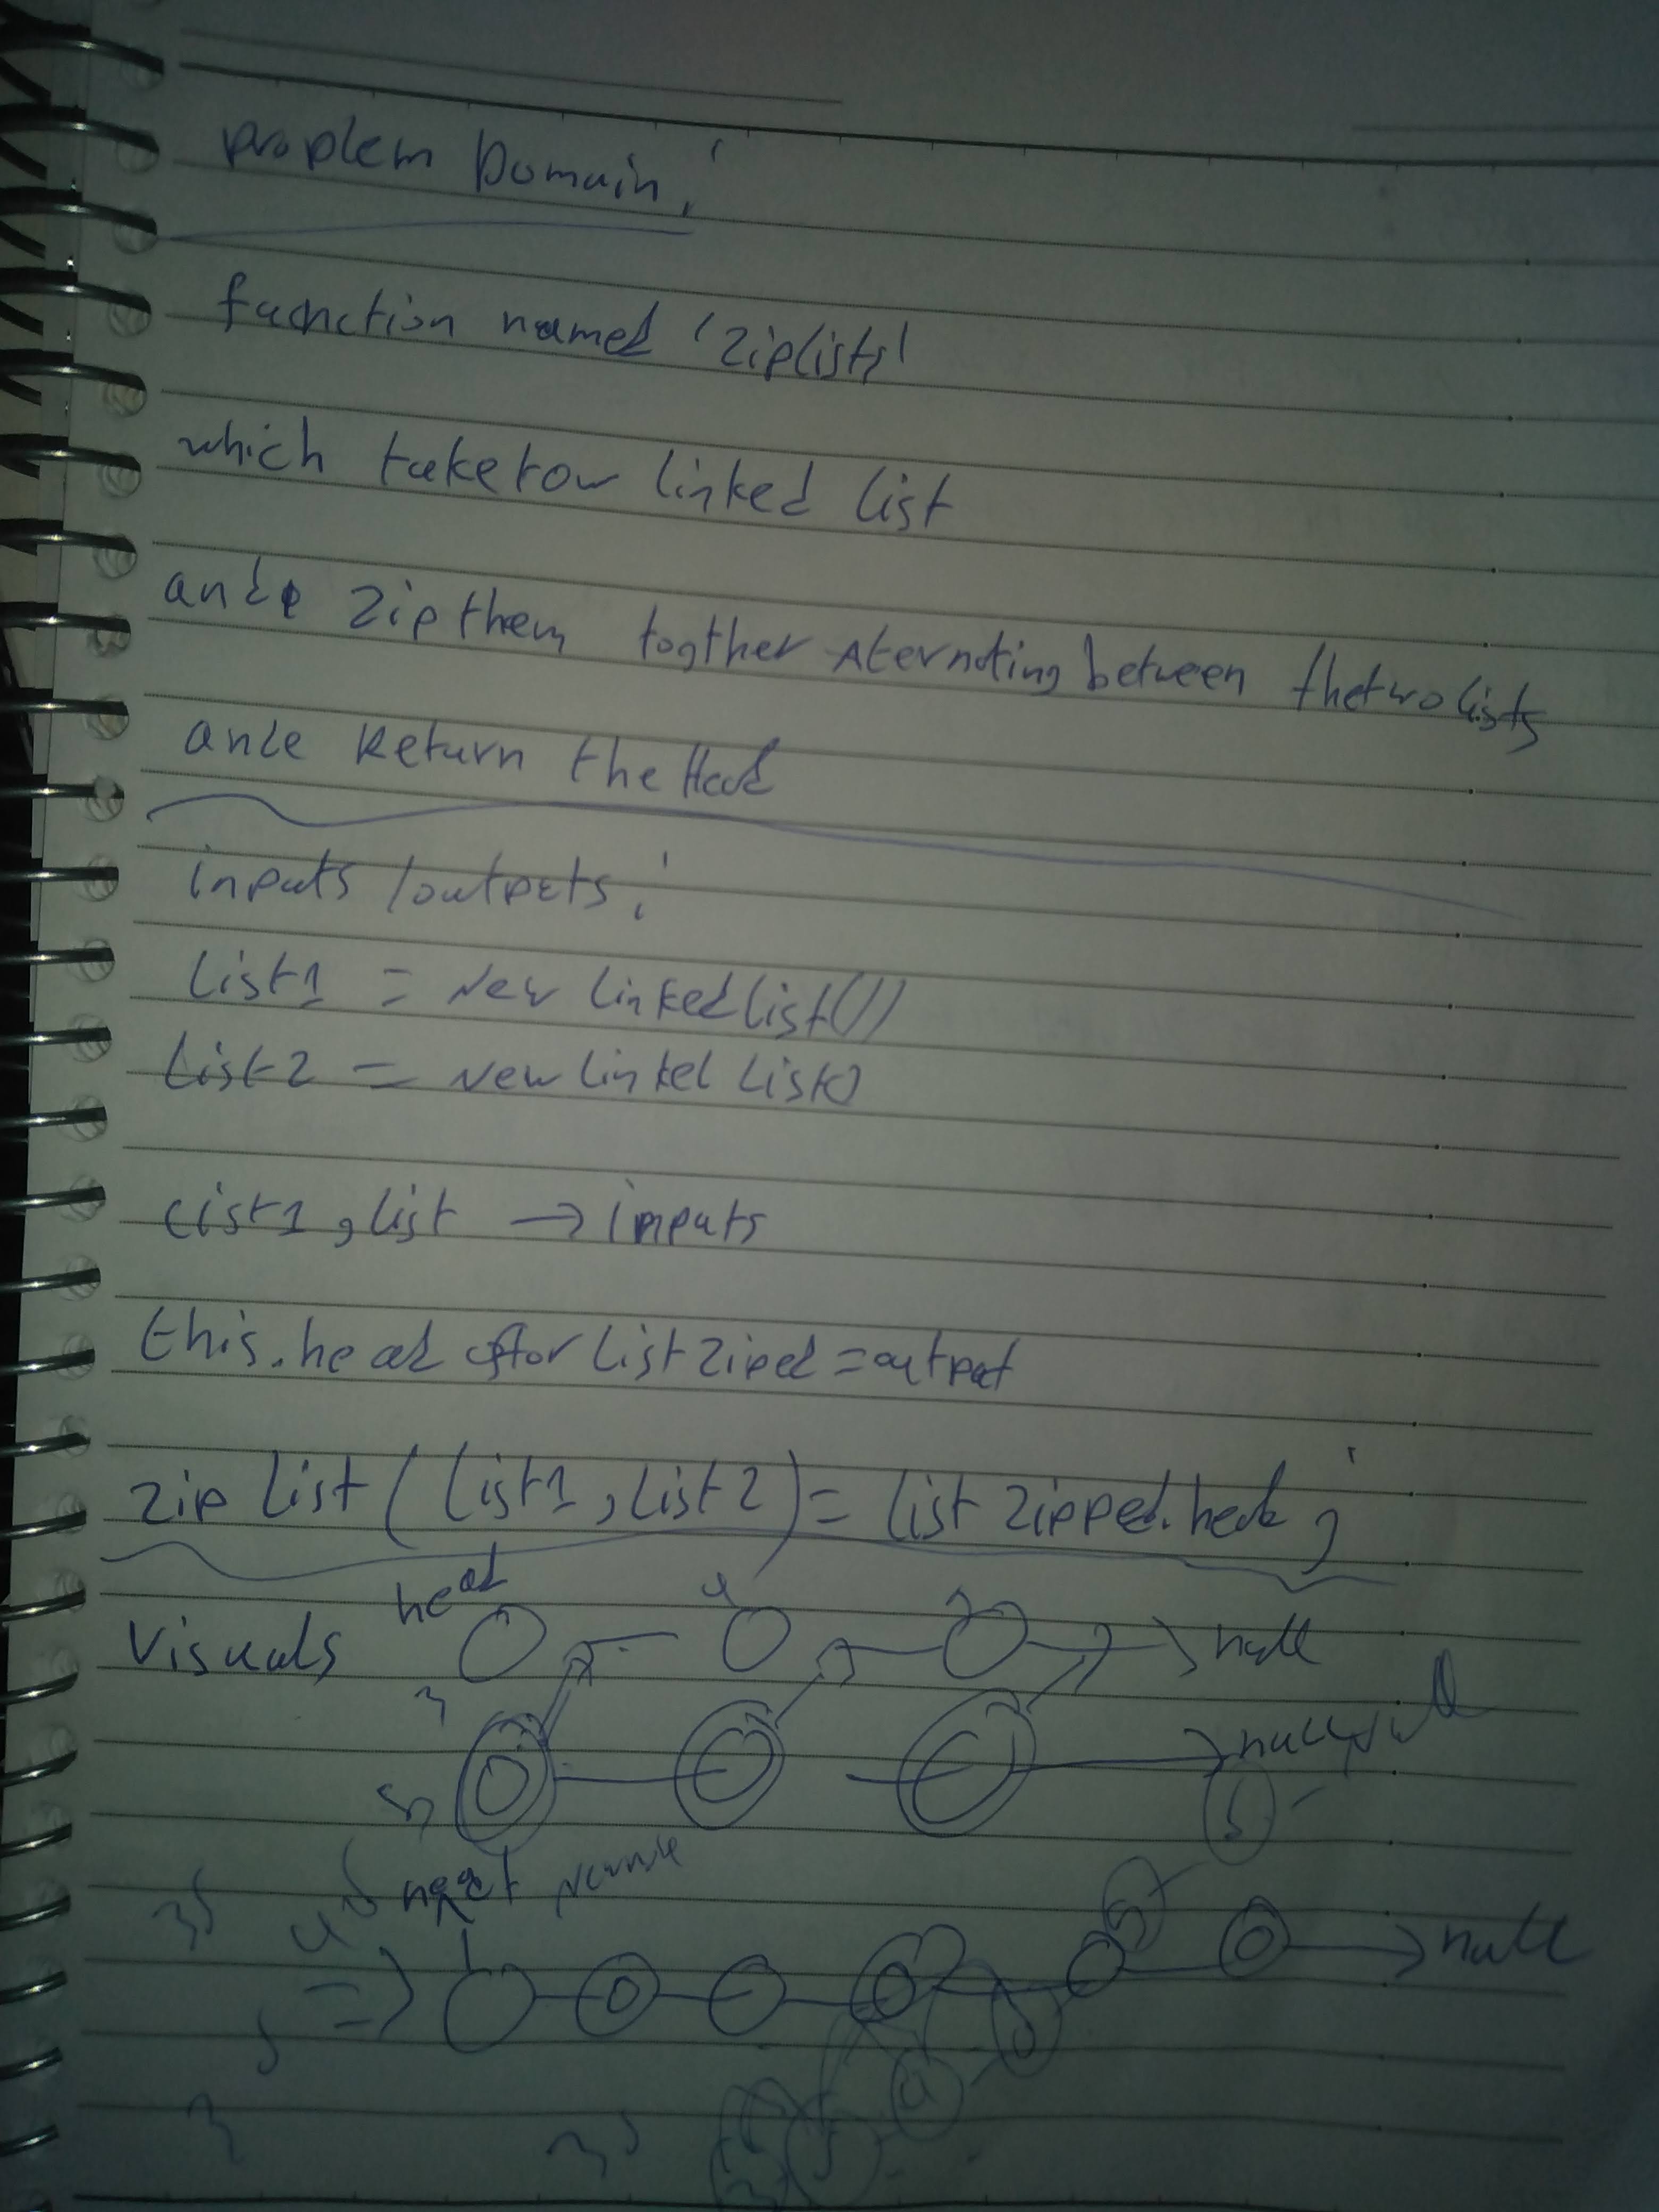 problem Domain:
function named 'ziplists'
which take tow linked list
ande zip them togther Aternating between the two lists
ande Return the Head
inputs / outputs:
list1 = New linked list()
list2 = New linked list()
list1, list → inputs
this.head after list ziped = output
zip list (list1, list2) = list zipped.head;
head 4
Visuals null
3
null
5
5
null
4
5